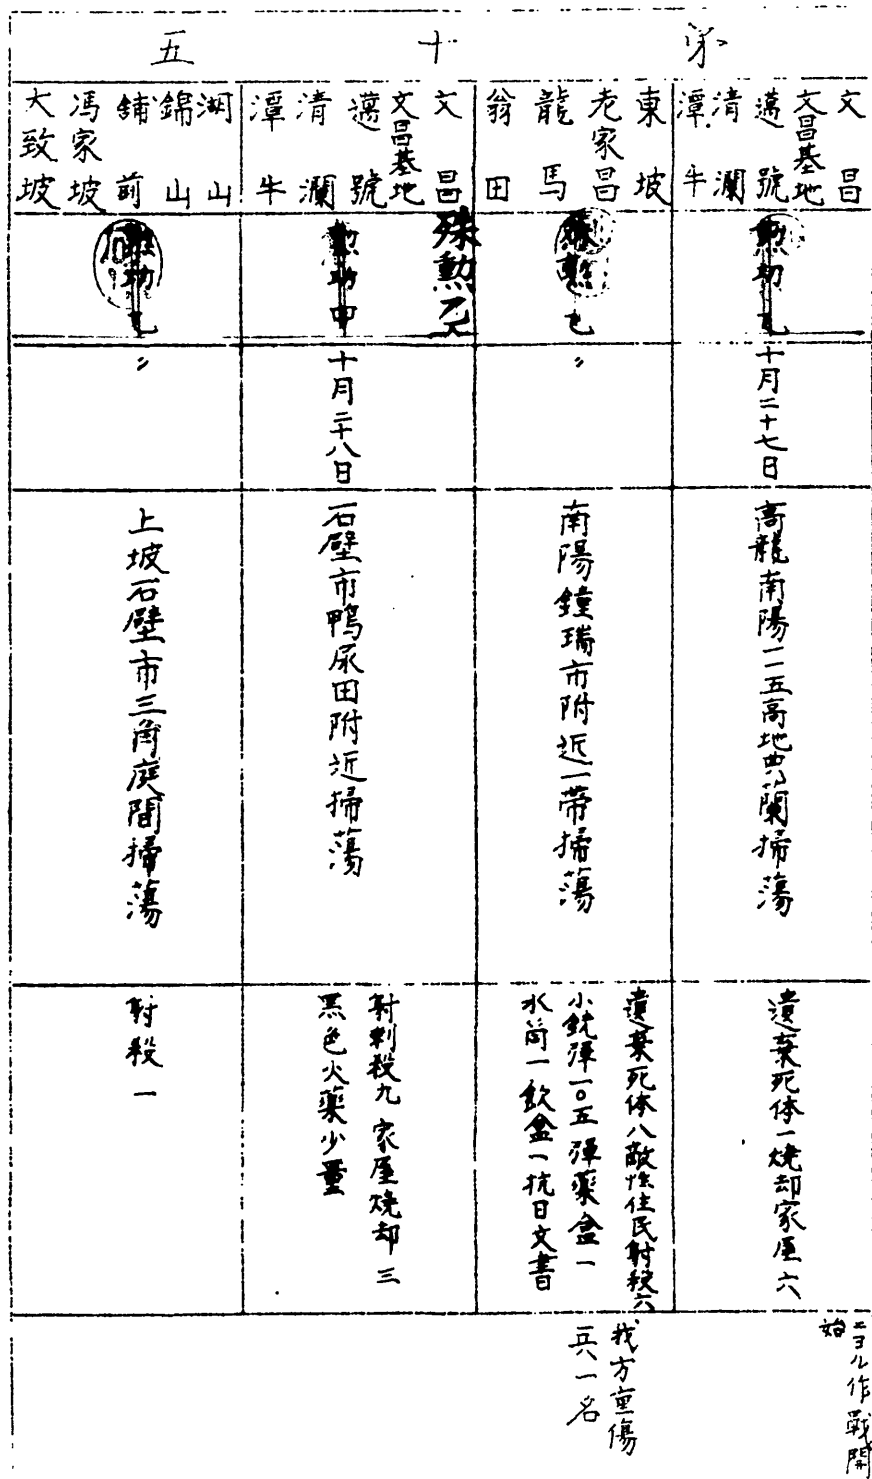 第十五
文昌
文昌基地
邁號
清瀾
潭牛
勲功乙
十月二十七日
高龍南陽一一五高地典蘭掃蕩
遺棄死体一燒却家屋六
ニヨル作戰開
始
東坡
老家昌
龍馬
翁田
乙
〃
南陽鐘瑞市附近一帯掃蕩
遺棄死体八敵性住民射殺六
小銃弾一〇五弾薬盒一
水筒一飲盒一抗日文書
我方重傷
兵一名
文昌
文昌基地
邁號
清瀾
潭牛
殊勲乙
勲功甲
十月二十八日
石壁市鴨尿田附近掃蕩
射刺殺九 家屋燒却三
黑色火薬少量
湖山
錦山
舖前
馮家坡
大致坡
勲功乙
〃
上坡石壁市三角庭間掃蕩
射殺一